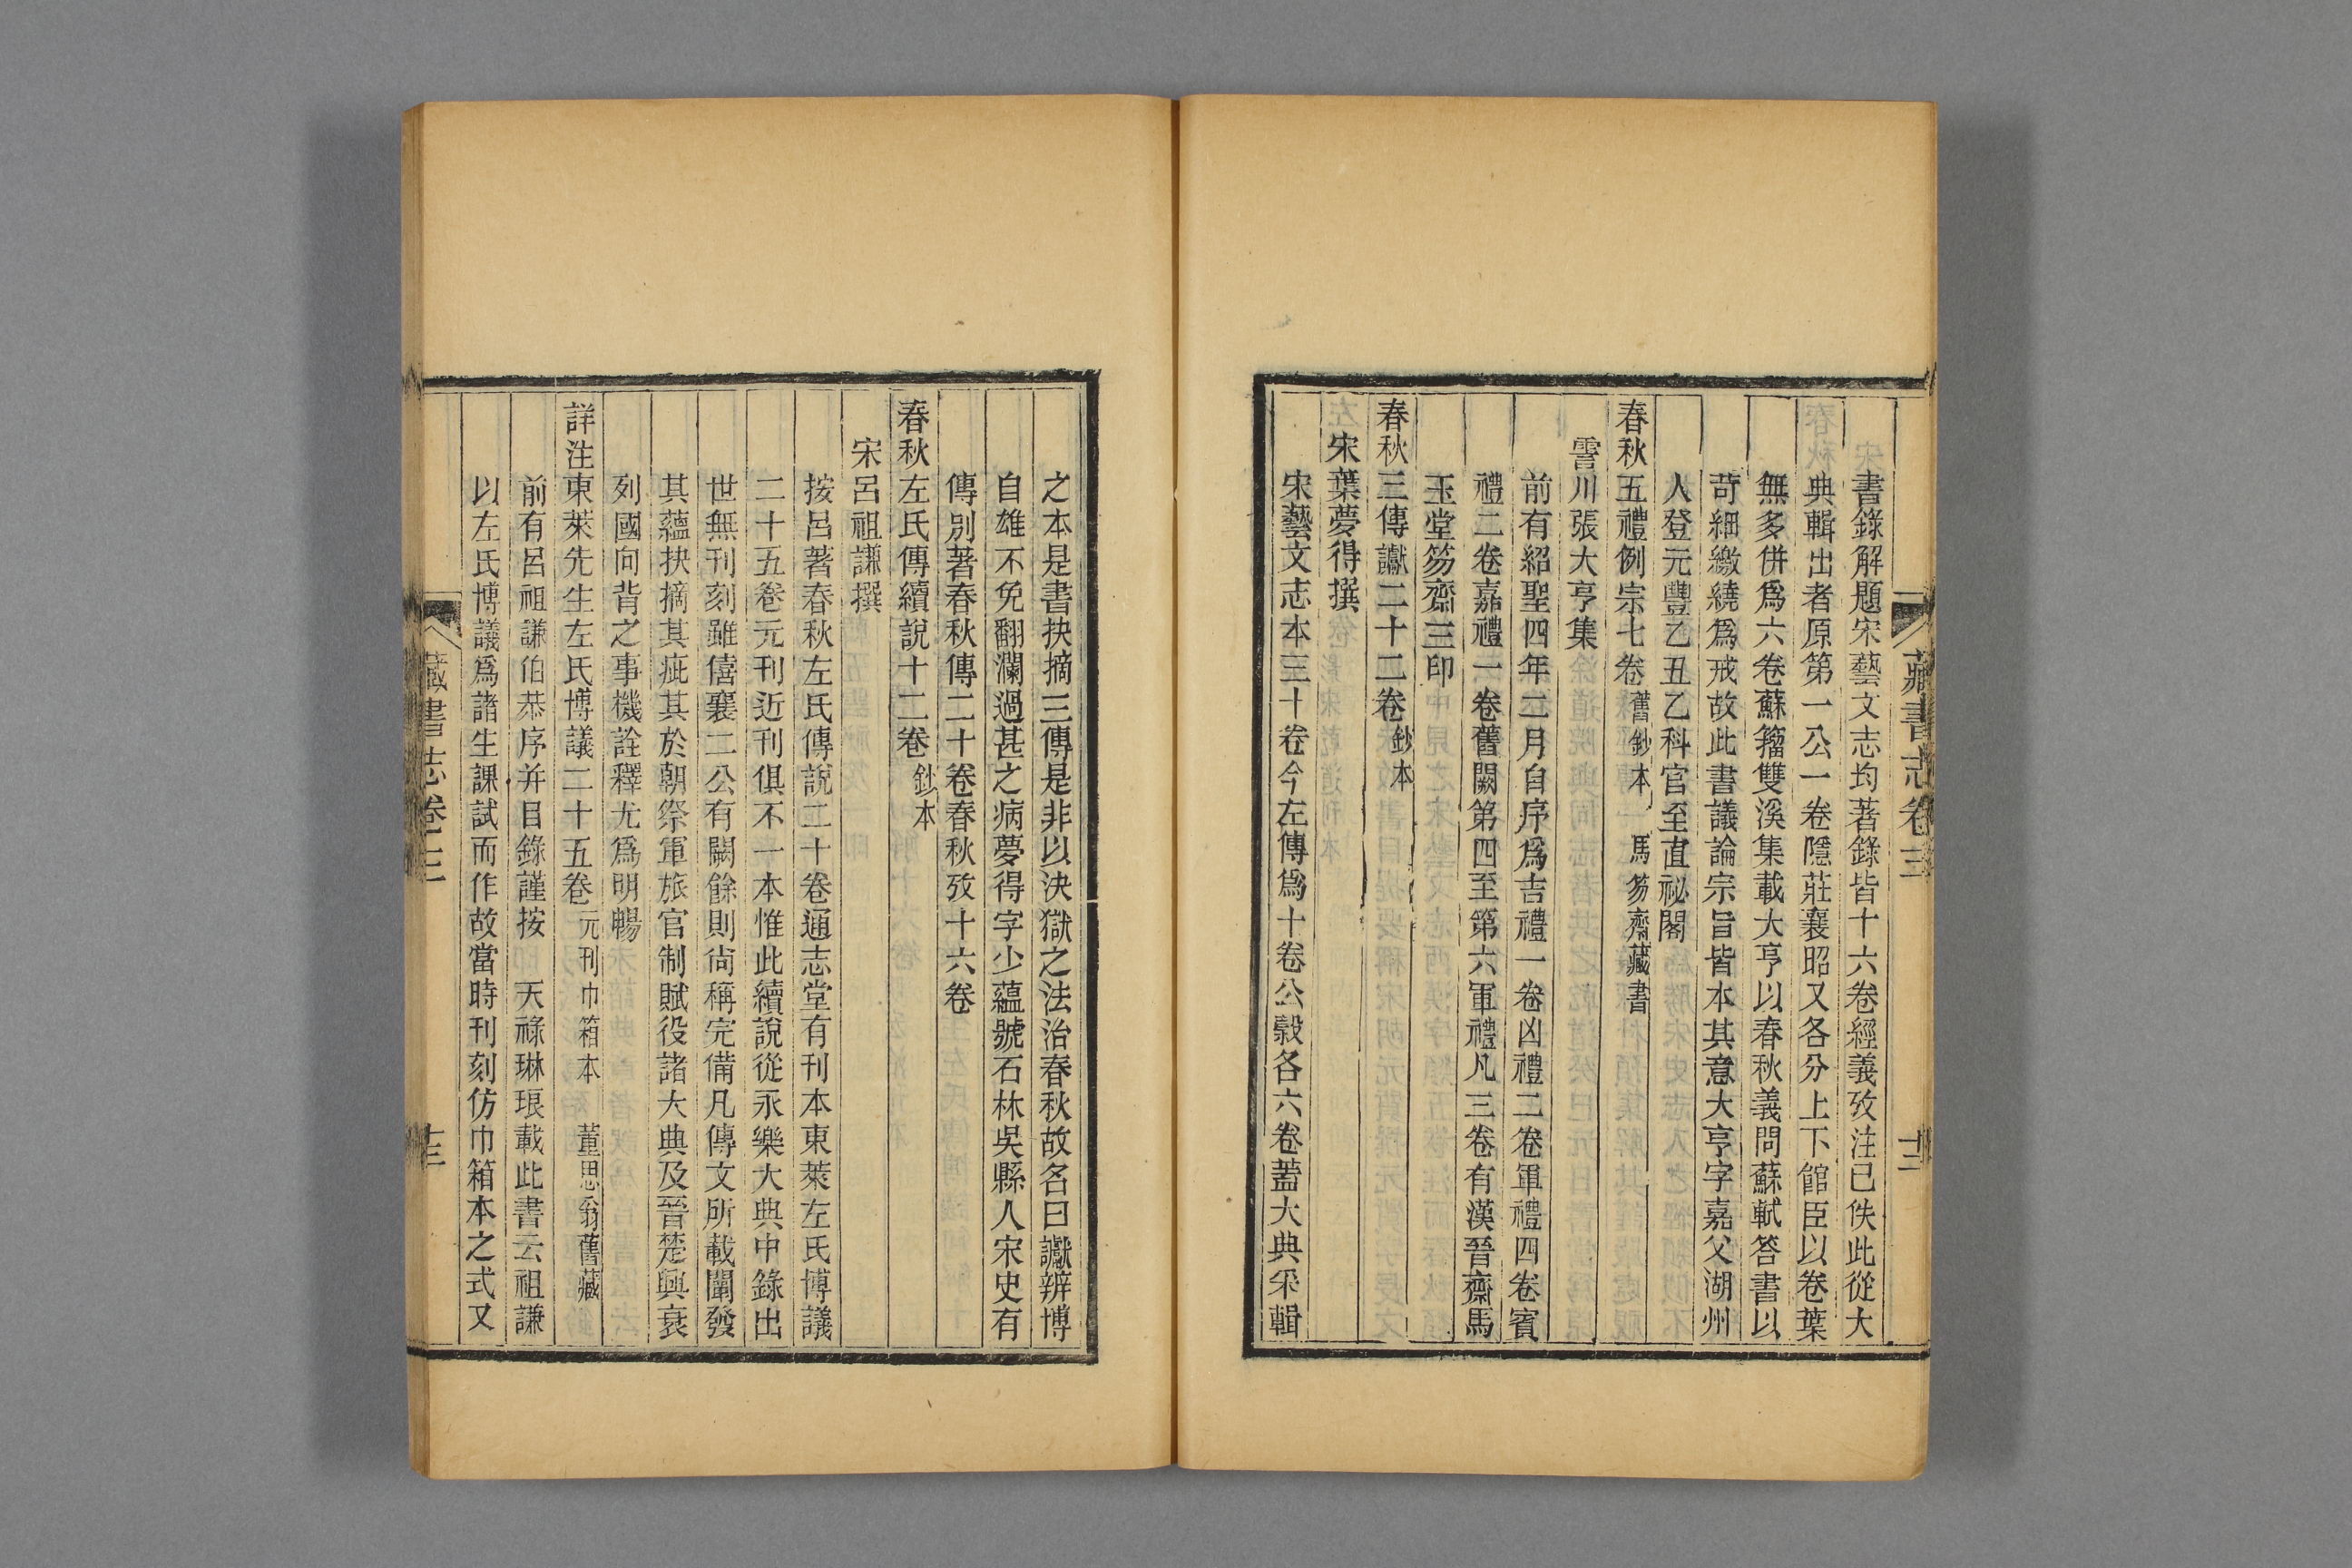 藏書志卷三
十二
書錄解題宋藝文志均著錄皆十六卷經義攷注已佚此從大
典輯出者原第一公一卷隱莊襄昭又各分上下館臣以卷葉
無多併爲六卷蘇籀雙溪集載大亨以春秋義問蘇軾答書以
苛細繳繞爲戒故此書議論宗旨皆本其意大亨字嘉父湖州
人登元豐乙丑乙科官至直祕閣
春秋五禮例宗七卷 舊鈔本 馬笏齋藏書
霅川張大亨集
前有紹聖四年二月自序爲吉禮一卷凶禮二卷軍禮四卷賓
禮二卷嘉禮一卷舊闕第四至第六軍禮凡三卷有漢晉齋馬
玉堂笏齋三印
春秋三傳讞二十二卷 鈔本
宋葉夢得撰
宋藝文志本三十卷今左傳爲十卷公穀各六卷蓋大典采輯
之本是書抉摘三傳是非以決獄之法治春秋故名曰讞辨博
自雄不免翻瀾過甚之病夢得字少蘊號石林吳縣人宋史有
傳別著春秋傳二十卷春秋攷十六卷
春秋左氏傳續說十二卷 鈔本
宋呂祖謙撰
按呂著春秋左氏傳說二十卷通志堂有刊本東萊左氏博議
二十五卷元刊近刊俱不一本惟此續說從永樂大典中錄出
世無刊刻雖僖襄二公有闕餘則尙稱完備凡傳文所載闡發
其蘊抉摘其疵其於朝祭軍旅官制賦役諸大典及晉楚興衰
列國向背之事機詮釋尤爲明暢
詳注東萊先生左氏博議二十五卷 元刊巾箱本 董思翁舊藏
前有呂祖謙伯恭序并目錄謹按 天祿琳琅載此書云祖謙
以左氏博議爲諸生課試而作故當時刊刻仿巾箱本之式又
藏書志卷三
十三